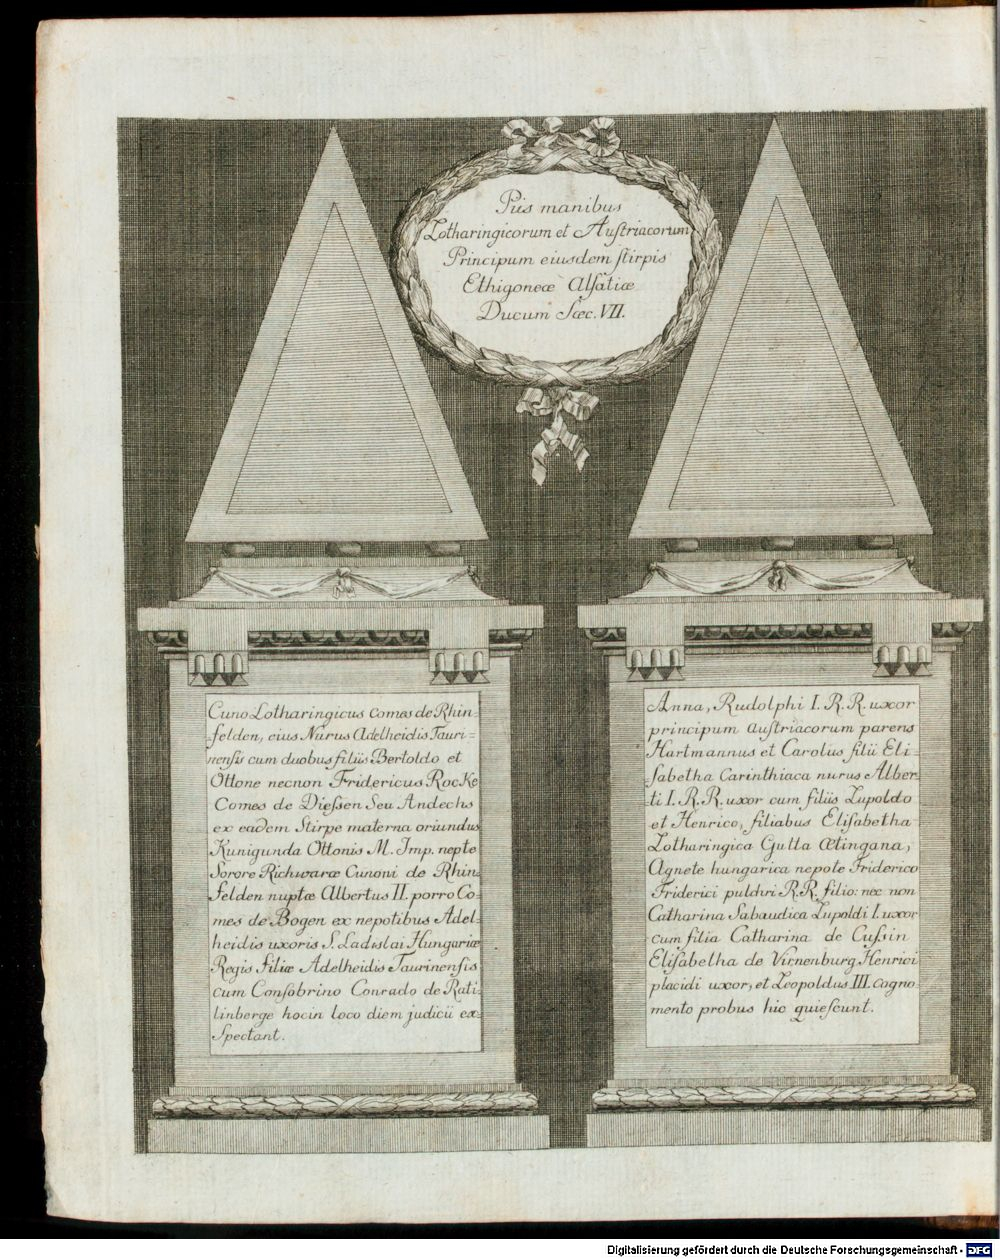 Piis manibus
Lotharingicorum et Auſtriacorum
Principum eiusdem ſtirpis
Ethigoneæ Alſatiæ
Ducum Sæc. VII.
Cuno Lotharingicus Comes de Rhin-
felden, eius Nurus Adelheidis Tauri=
nenſis cum duobus filiis Bertoldo et
Ottone necnon Fridericus Rocke
Comes de Dieſsen Seu Andechs
ex eadem Stirpe materna oriundus
Kunigunda Ottonis M. Imp. nepte
Sorore Richwaræ Cunoni de Rhin
felden nuptæ Albertus II. porro Co-
mes de Bogen ex nepotibus Adel-
heidis uxoris S. Ladislai Hungariæ
Regis Filiæ Adelheidis Taurinenſis
cum Conſobrino Conrado de Rati-
linberge hocin loco diem judicii ex-
Spectant.
Anna, Rudolphi I. R. R. uxor
principum auſtriacorum parens
Hartmannus et Carolus filii Eli-
ſabetha Carinthiaca nurus Alber-
ti I. R. R. uxor cum filiis Lupoldo
et Henrico, filiabus Eliſabetha
Lotharingica Gutta Ætingana,
Agnete hungarica nepote Friderico
Friderici pulchri R. R. filio: nec non
Catharina Sabaudica Lupoldi I. uxor
cum filia Catharina de Cuſsin
Eliſabetha de Virnenburg Henrici
placidi uxor, et Leopoldus III. cogno-
mento probus hic quieſcunt.
Digitalisierung gefördert durch die Deutsche Forschungsgemeinschaft - DFG